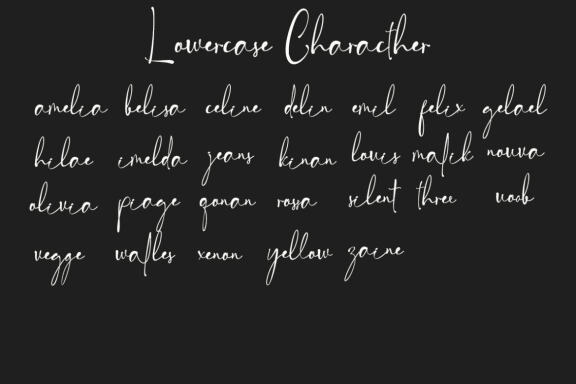 Lowercase Characther
amelia belisa celine delin emil felix gelael
hilae imelda jeans kinan louis malik nouva
olivia piage qonan rossa silent three uoob
vegge wafles xenon yellow zaine